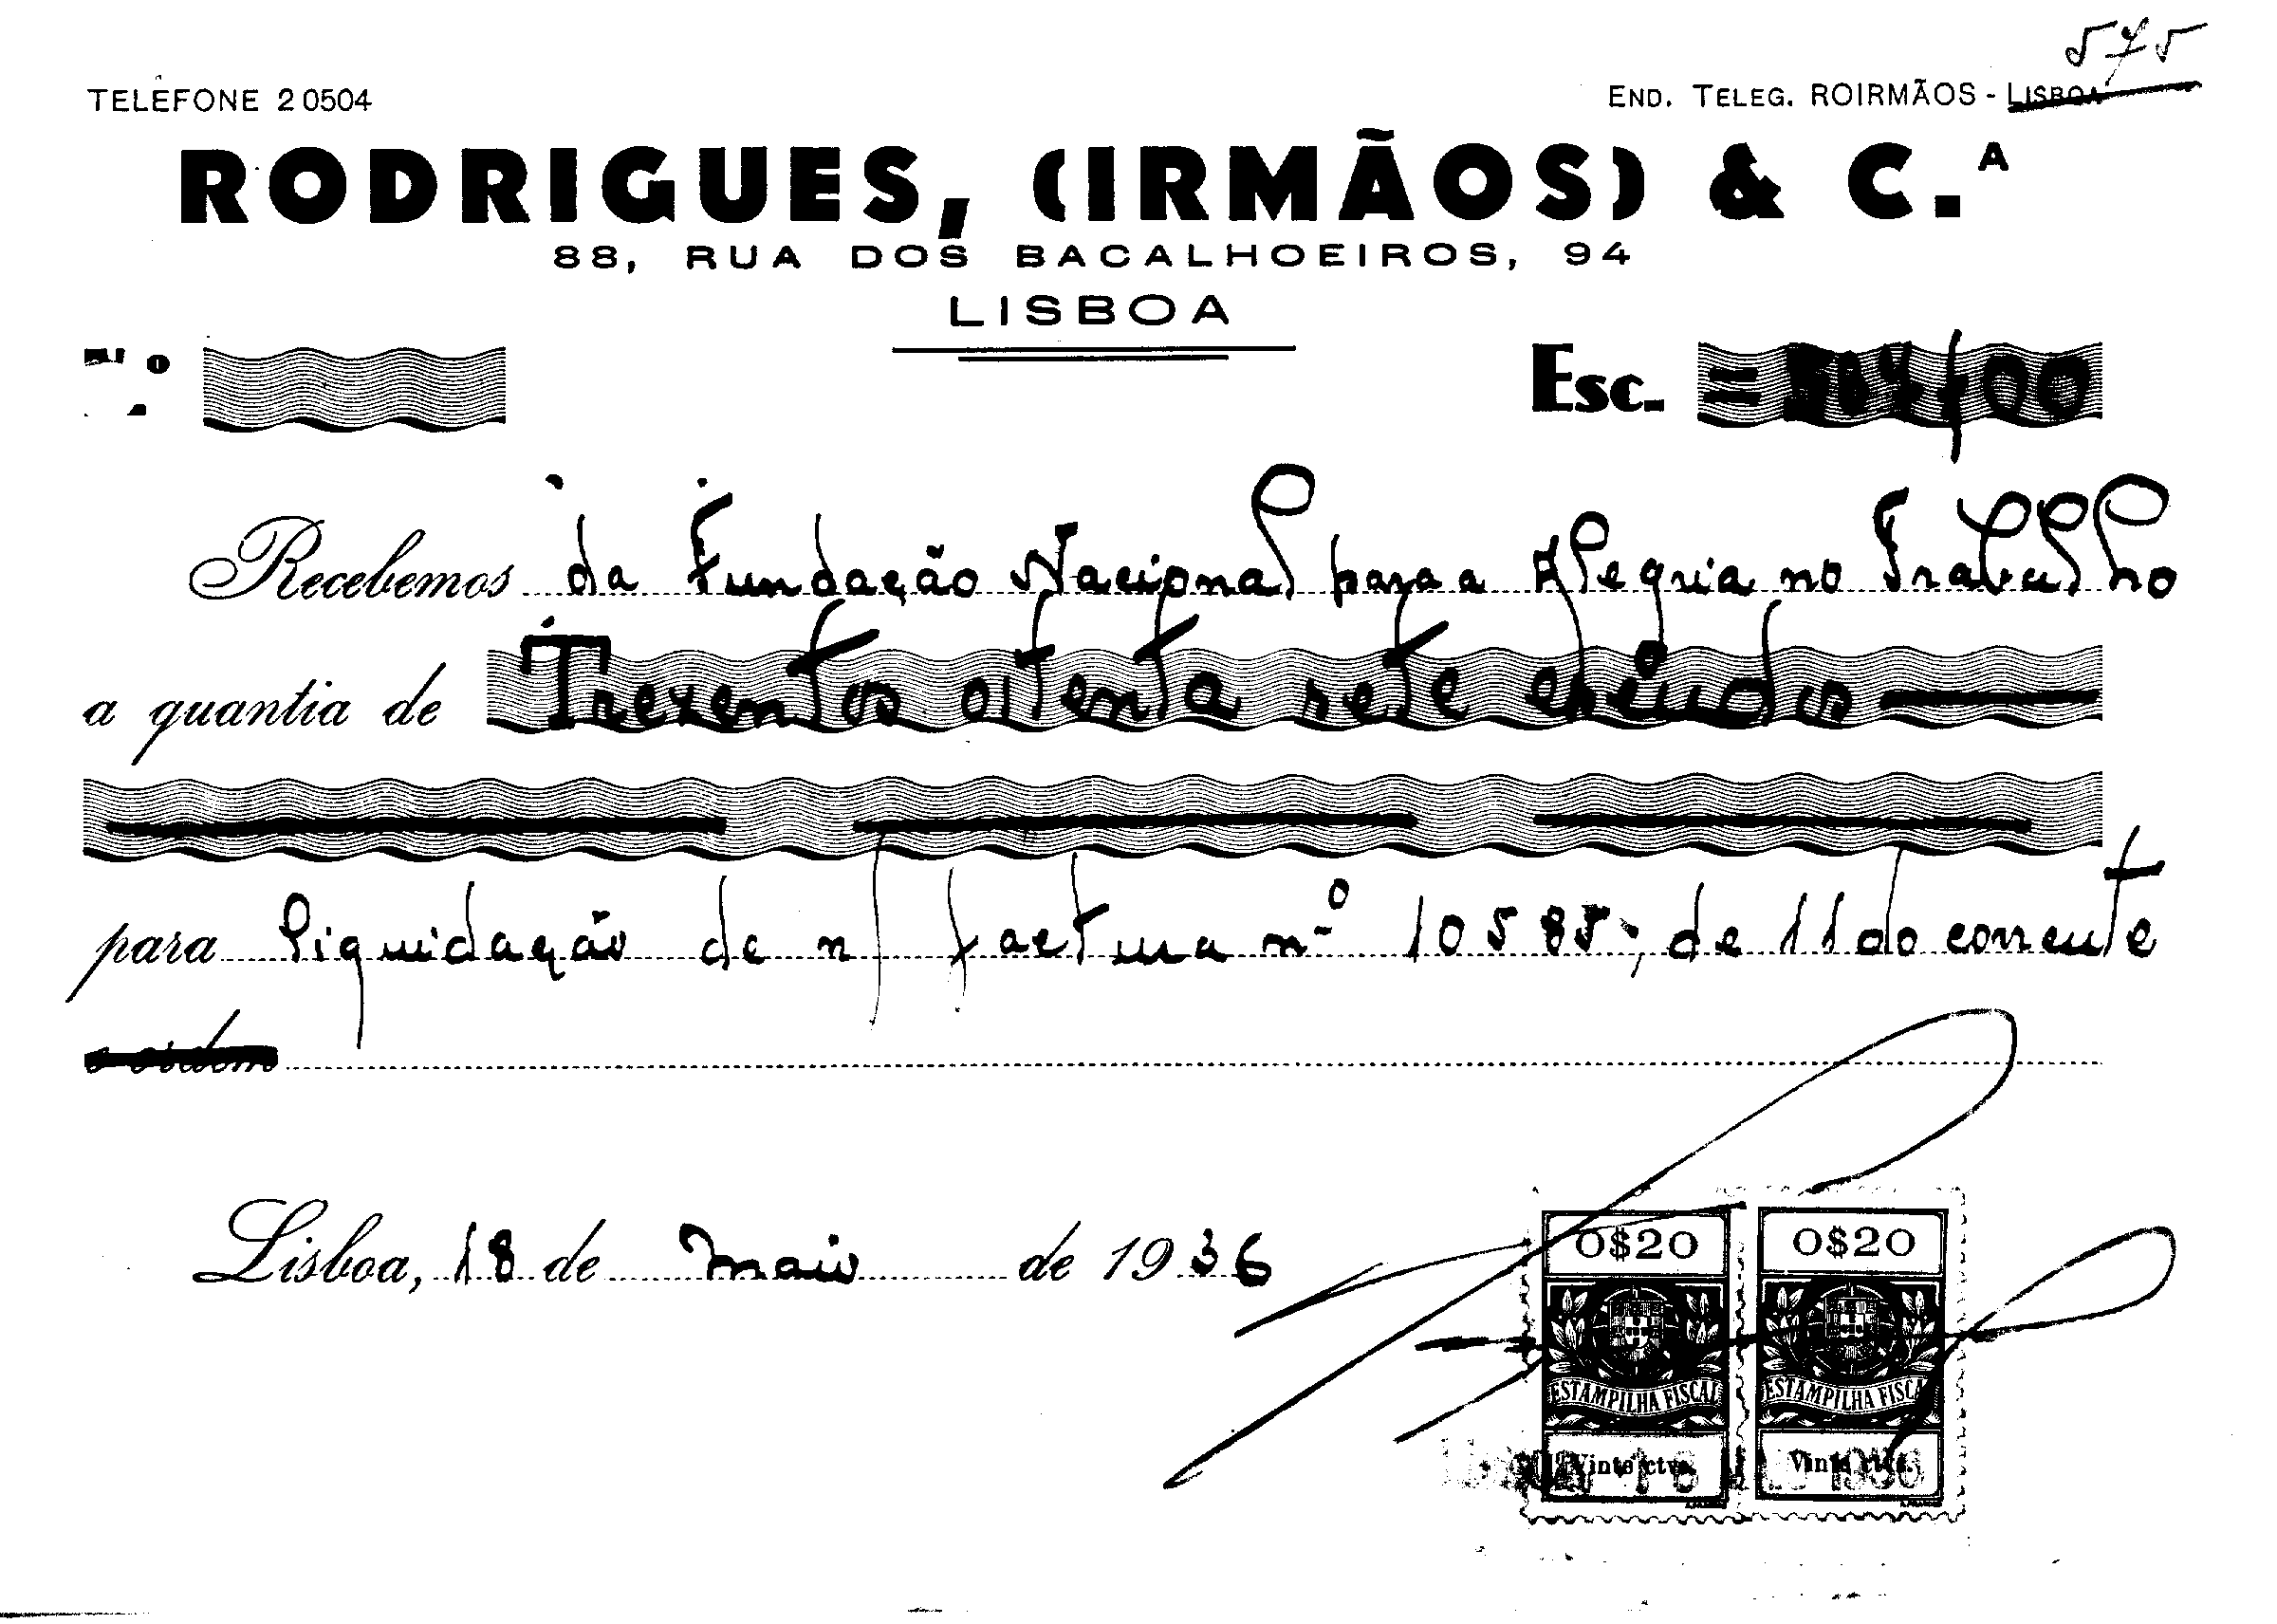 575
TELEFONE 2 0504
END. TELEG. ROIRMÃOS - LISBOA
RODRIGUES, (IRMÃOS) & C.A
88, RUA DOS BACALHOEIROS, 94
LISBOA
Esc.
Recebemos da Fundação Nacional para a Alegria no Trabalho
a quantia de Trezentos oitenta sete escudos
para liquidação de n/ factura n.º 10585, de 11 do corrente
Lisboa, 18 de maio de 1936
0$20 0$20
ESTAMPILHA FISCAL ESTAMPILHA FISCA
Vinte ctvs. Vinte ctvs.
1936